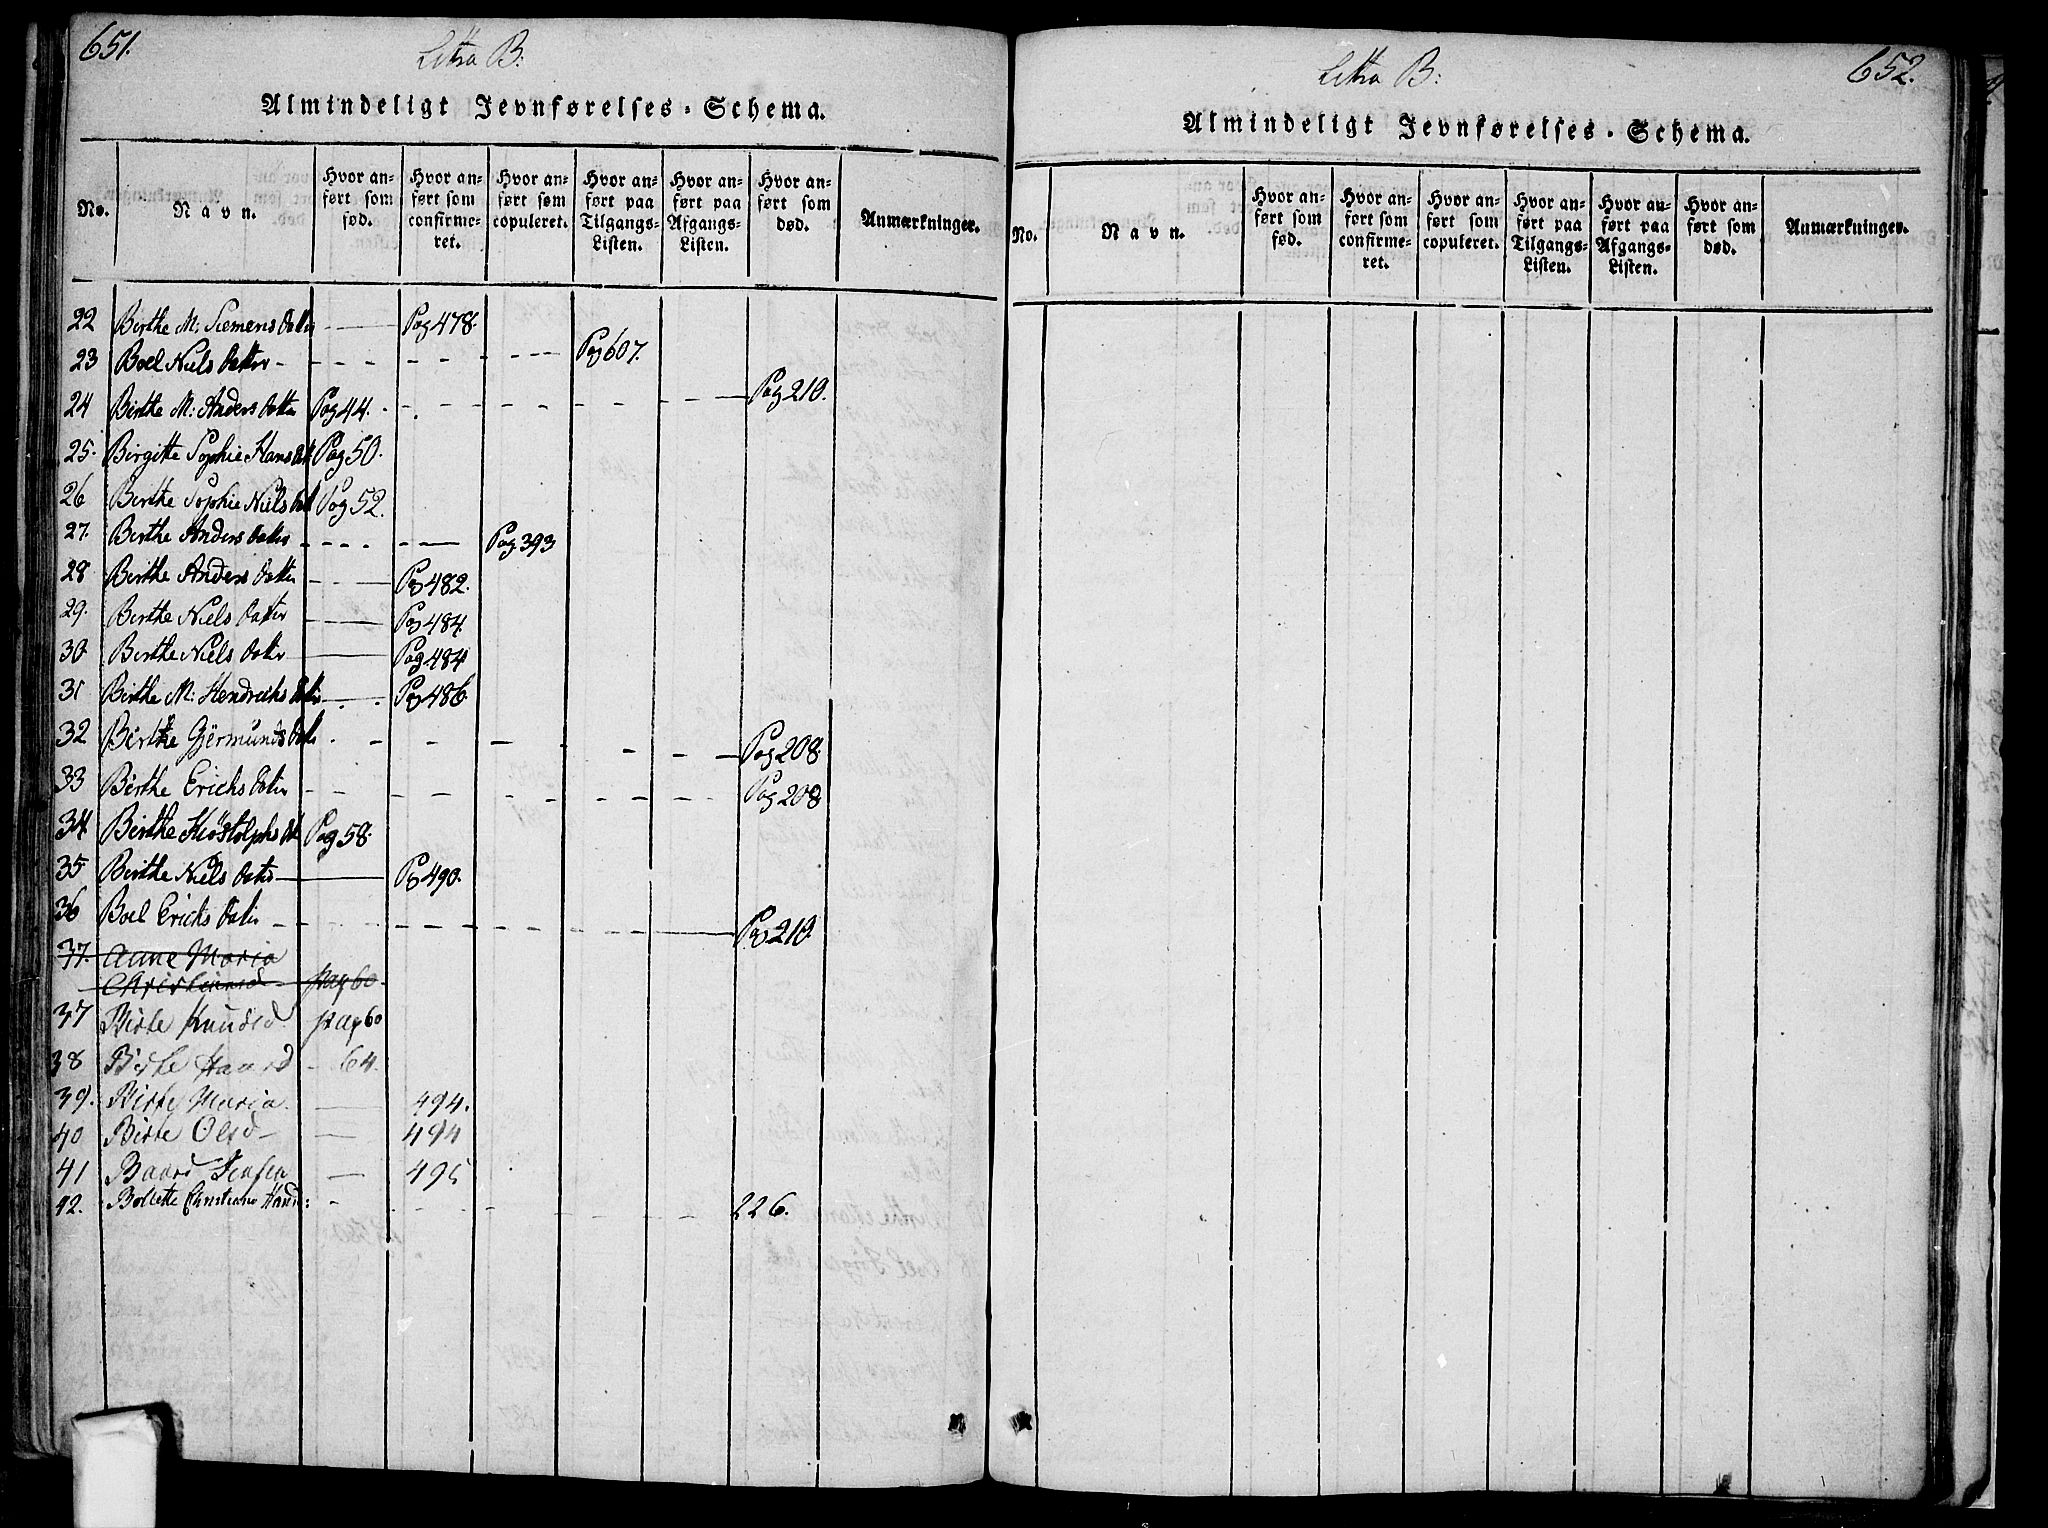 651.
Littra B:
Almindeligt Jevnførelses-Schema.
No. Navn. Hvor anført som født. Hvor anført som confirmeret. Hvor anført som copuleret. Hvor anført paa Tilgangs-Listen. Hvor anført paa Afgangs-Listen. Hvor anført som død. Anmærkninger.
22 Birthe M: Siemens Datter Pag 478.
23 Boel Niels Datter Pag 607.
24 Birthe M: Anders Datter Pag 44. Pag 210.
25. Birgitte Sophie Hans Dat Pag 50.
26 Birthe Sophie Niels Dat Pag 52.
27. Birthe Anders Datter Pag 393
28 Birthe Anders Datter Pag 482.
29. Birthe Niels Datter Pag 484.
30 Birthe Niels Datter Pag 484
31 Birthe M: Hendrichs Datter Pag 486
32 Birthe Gjermunds Datter Pag 208.
33 Birthe Erichs Datter Pag 208
34 Birthe Kiøstolphs Dat Pag 58.
35 Birthe Niels Datter Pag 490.
36 Boel Erichs Datter Pag 210.
37. Anne Maria
Christiansd pag 60
37 Birte Knudsd pag 60
38 Birte Haavsd 64.
39. Birte Maria 494.
40 Birte Olsd 494
41 Baard Jensen 495
42. Bolette Christiane Hansd: 226.
652.
Littra B:
Almindeligt Jevnførelses-Schema.
No. Navn. Hvor anført som fød. Hvor anført som confirmeret. Hvor anført som copuleret. Hvor anført paa Tilgangs-Listen. Hvor anført paa Afgangs-Listen. Hvor anført som død. Anmærkninger.